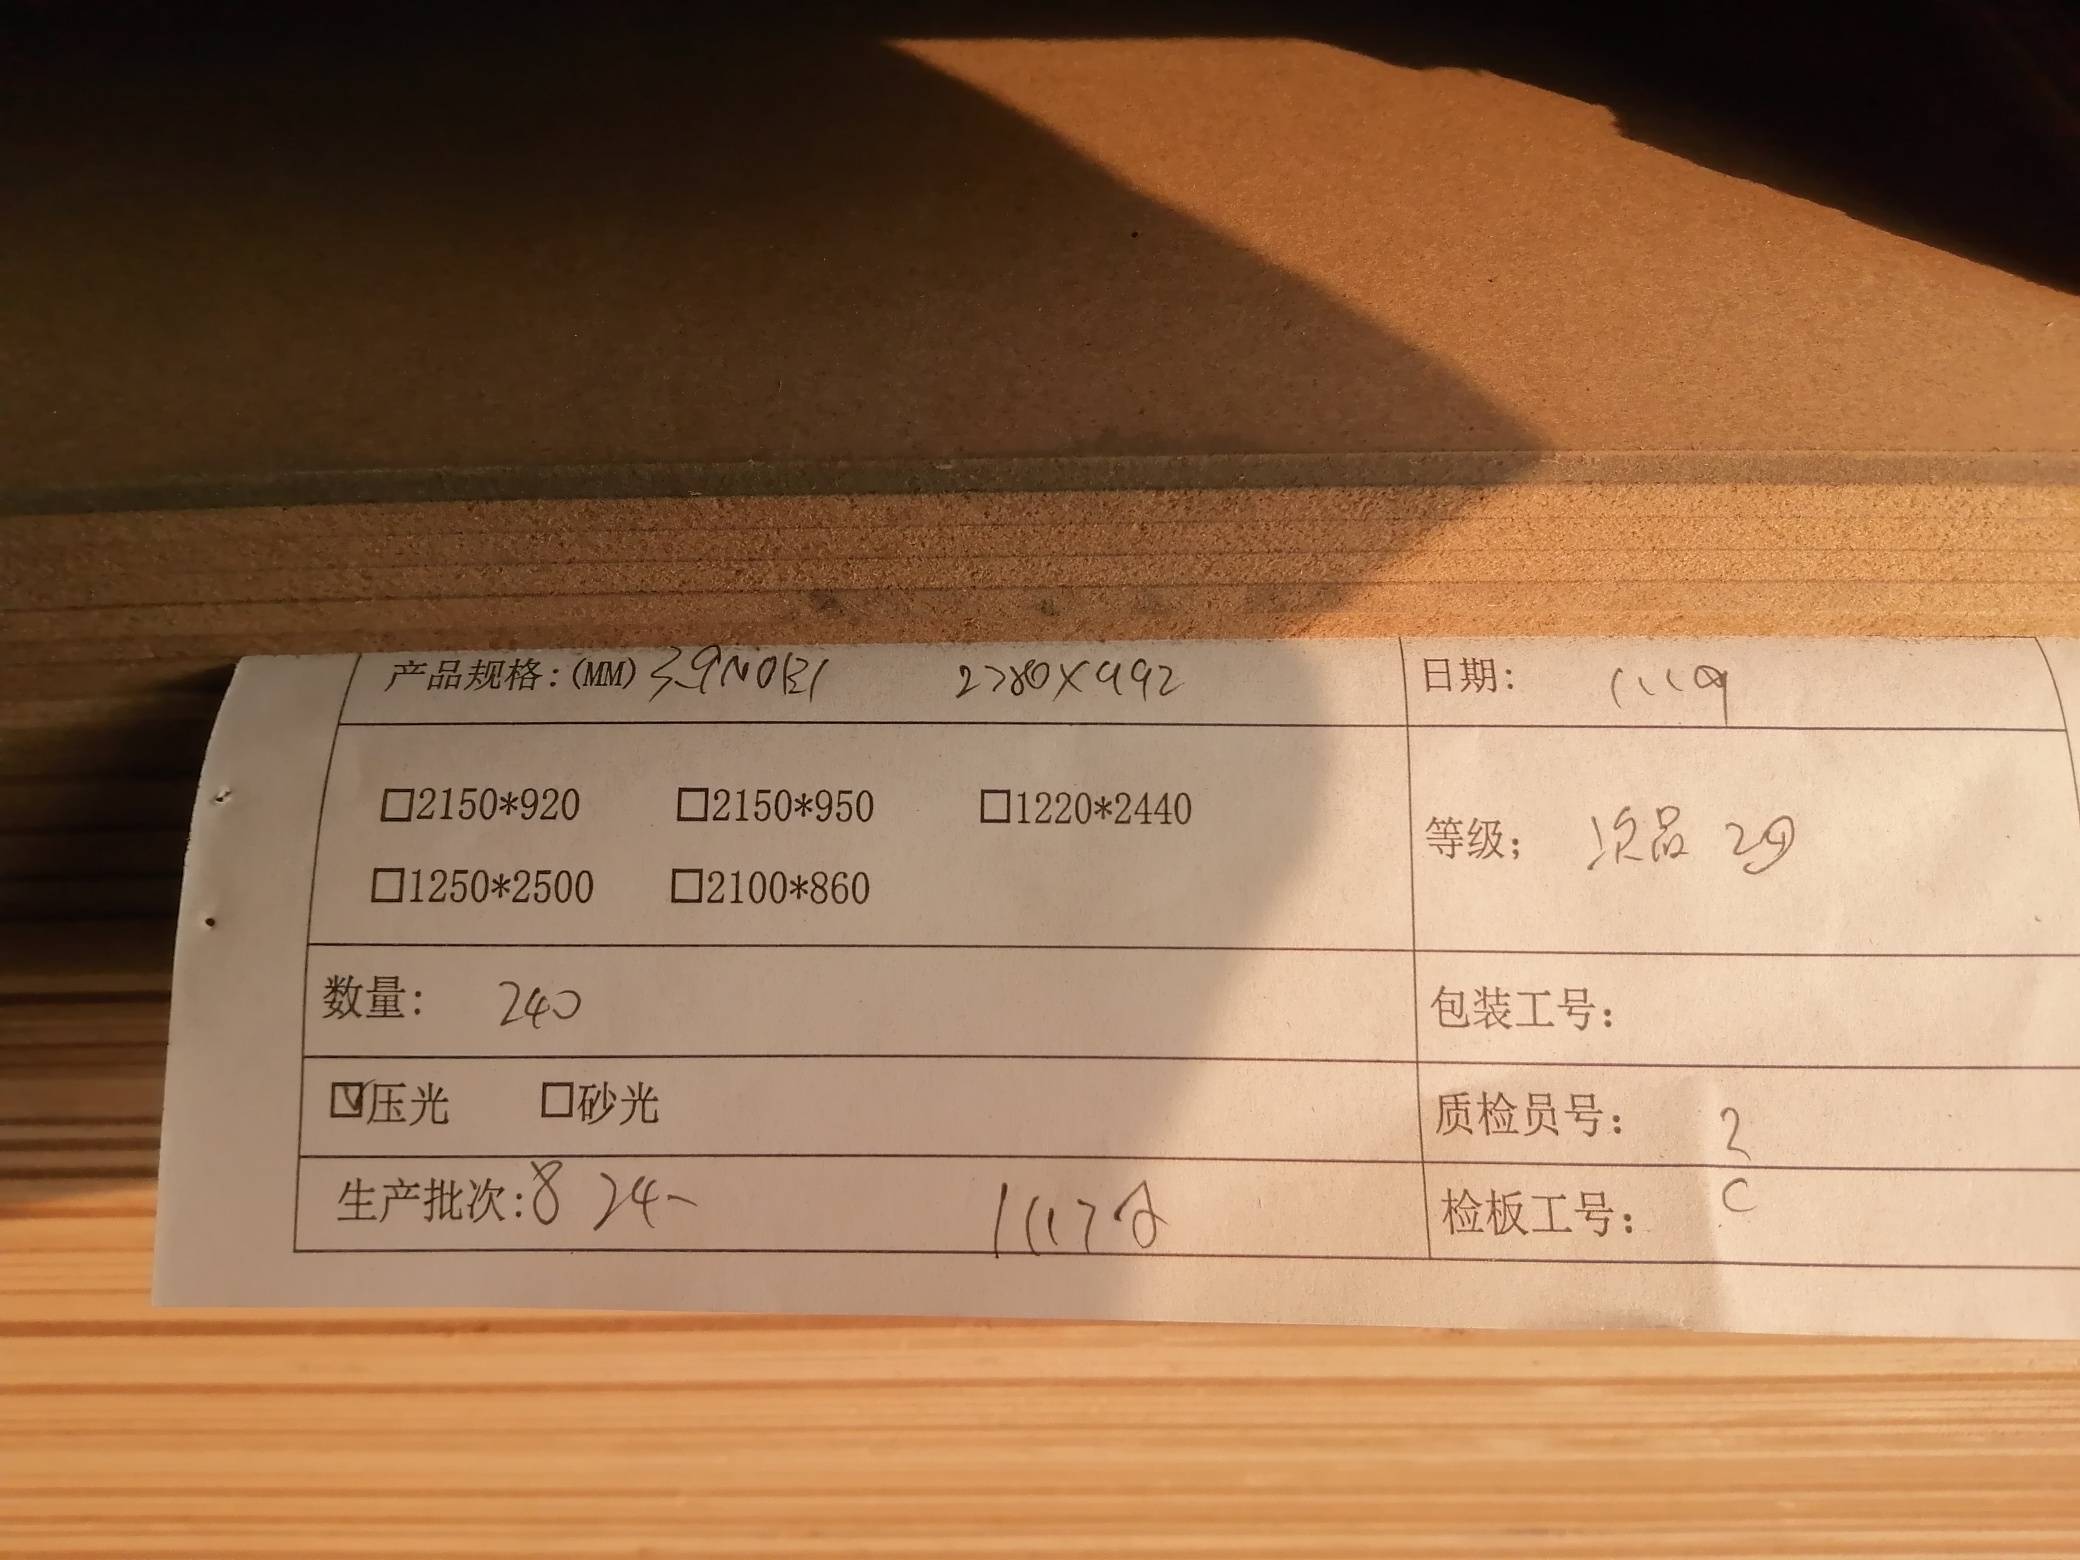 产品规格:(MM) 3.9 2280X992 日期: 1.119
□2150*920 □2150*950 □1220*2440
□1250*2500 □2100*860
等级; 次品
数量: 240 包装工号:
☑压光 □砂光 质检员号: 2
生产批次:8 24- 检板工号: C